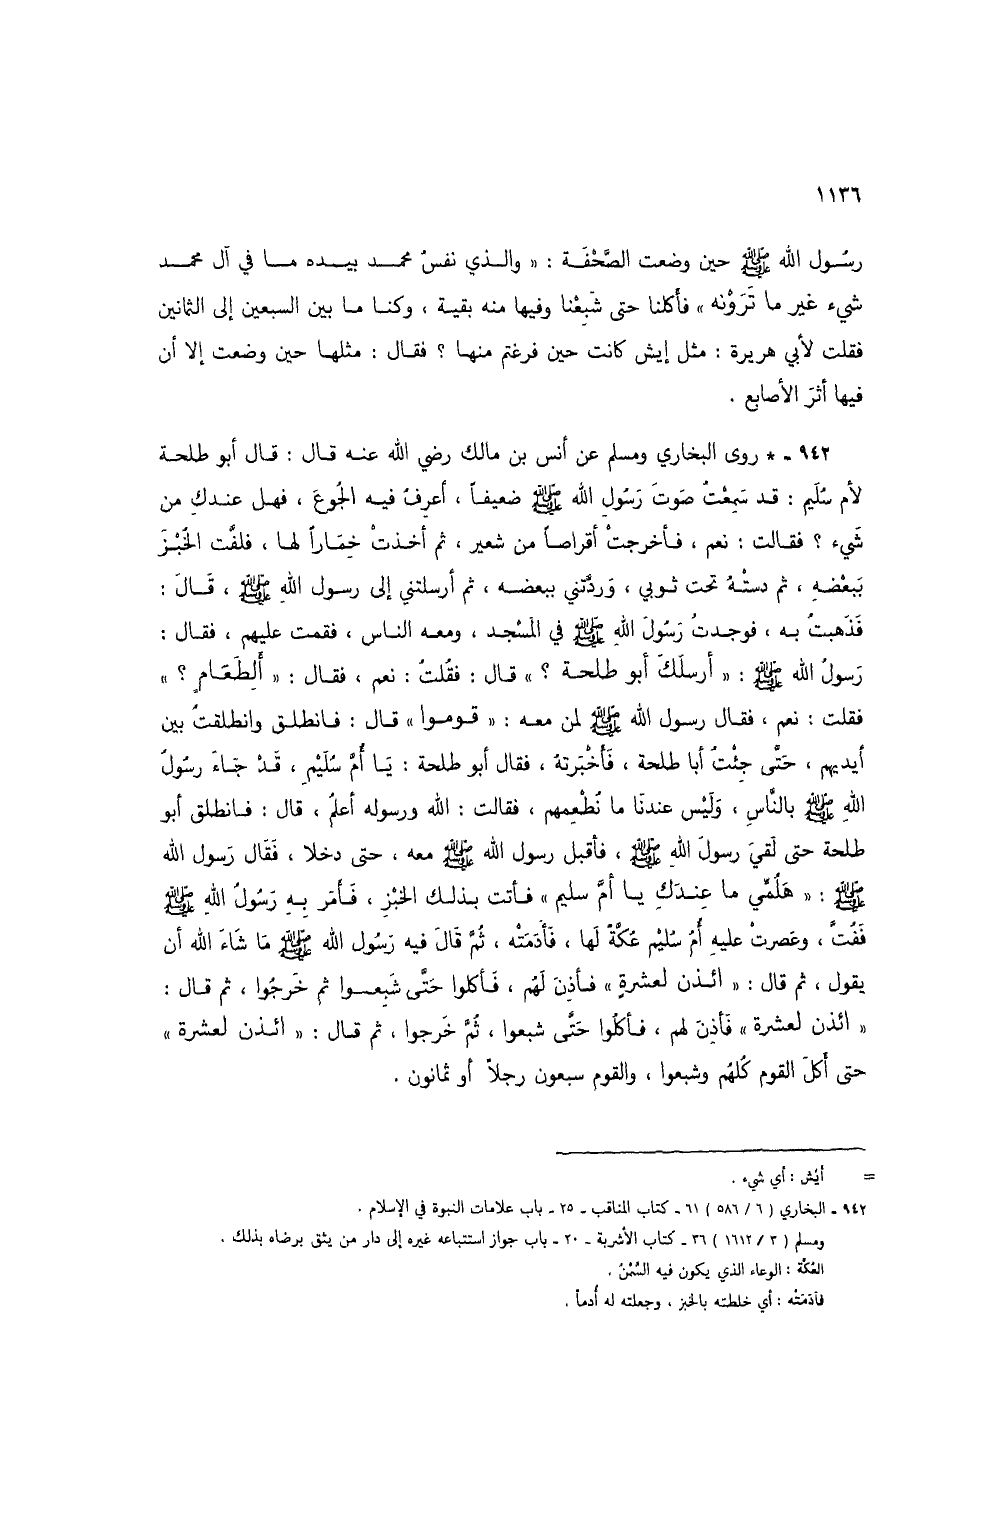 ١١٣٦
رسُول الله ﷺ حين وضعت الصَّحْفَة : « والذي نفسُ محمد بيده ما في آل محمد
شيء غير ما تَرَوْنه » فأَكلنا حتى شَبِعْنا وفيها منه بقية ، وكنا ما بين السبعين إلى الثمانين
فقلت لأبي هريرة : مثل إيش كانت حين فرغتم منها ؟ فقال : مثلها حين وضعت إلا أن
فيها أثرَ الأصابع .
٩٤٢ - * روى البخاري ومسلم عن أنس بن مالك رضي الله عنه قال : قال أبو طلحة
لأم سُلَيم : قد سَمِعْتُ صَوتَ رَسُولِ الله ﷺ ضعيفاً ، أعرِفُ فيه الجُوعَ ، فهل عندكِ من
شَيء ؟ فقالت : نعم ، فأخرجتْ أقراصاً من شعير ، ثم أخذتْ خِمَاراً لها ، فلفَّت الخُبْزَ
بَبعْضهِ ، ثم دستْهُ تحت ثوبي ، وَردَّتني ببعضه ، ثم أرسلتني إلى رسول اللهِ ﷺ ، قَالَ :
فَذَهبتُ به ، فوجدتُ رَسُولَ اللهِ ﷺ في المَسْجد ، ومعه الناس ، فقمت عليهم ، فقال :
رَسولُ الله ﷺ : « أرسلَكَ أبو طلحة ؟ » قال : فقُلتُ : نعم ، فقال : « أَلِطَعَامٍ ؟ »
فقلت : نعم ، فقال رسول الله ﷺ لمن معه : « قوموا » قال : فانطلق وانطلقتُ بين
أيديهم ، حَتَّى جِئْتُ أبا طلحة ، فَأخْبَرتهُ ، فقال أبو طلحة : يَا أُمَّ سُلَيْمٍ ، قَدْ جَاءَ رسُولُ
اللهِ ﷺ بالنَّاسِ ، وَلَيْس عندنَا ما نُطْعِمهم ، فقالت : الله ورسوله أعلمُ ، قال : فانطلق أبو
طلحة حتى لَقيَ رسولَ اللهِ ﷺ ، فأقبل رسول الله ﷺ معه ، حتى دخلا ، فَقَال رَسول الله
ﷺ : « هَلُمِّي ما عِندَكِ يا أمَّ سليم » فأتت بذلك الخبْزِ ، فَأمَر بِهِ رَسُولُ اللهِ ﷺ
فَفُتَّ ، وعَصرتْ عليهِ أُمُ سُليْم عُكَّةً لَها ، فَأدَمَتْه ، ثُمَّ قَالَ فيه رَسُول الله ﷺ مَا شَاءَ الله أن
يقول ، ثم قال : « ائذن لعشرةٍ » فأذِنَ لَهُم ، فَأكلوا حَتَّى شَبِعوا ثم خَرجُوا ، ثم قال :
« ائذن لعشرة » فَأذِنَ لهم ، فأكَلُوا حَتَّى شبعوا ، ثُمَّ خَرجوا ، ثم قال : « ائذن لعشرة »
حتى أَكلَ القوم كُلهُم وشبعوا ، والقوم سبعون رجلاً أو ثمانون .
= أيْش : أي شيء .
٩٤٢ - البخاري ( ٦ / ٥٨٦ ) ٦١ - كتاب المناقب - ٢٥ - باب علامات النبوة في الإسلام .
ومسلم ( ٣ / ١٦١٢ ) ٣٦ - كتاب الأشربة - ٢٠ - باب جواز استتباعه غيره إلى دار من يثق برضاه بذلك .
العُكَّة : الوعاء الذي يكون فيه السَّمْنُ .
فأدَمَتْه : أي خلطته بالخبز ، وجعلته له أُدماً .